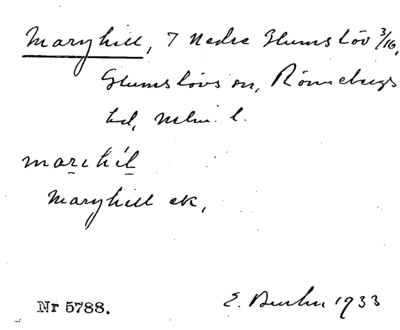 Maryhill, 7 Nedre Glumslöv 3/16,
Glumslövs sn, Rönnebergs
hd, Malm. l.
marihíl
Maryhill ek,
Nr 5788. 1933